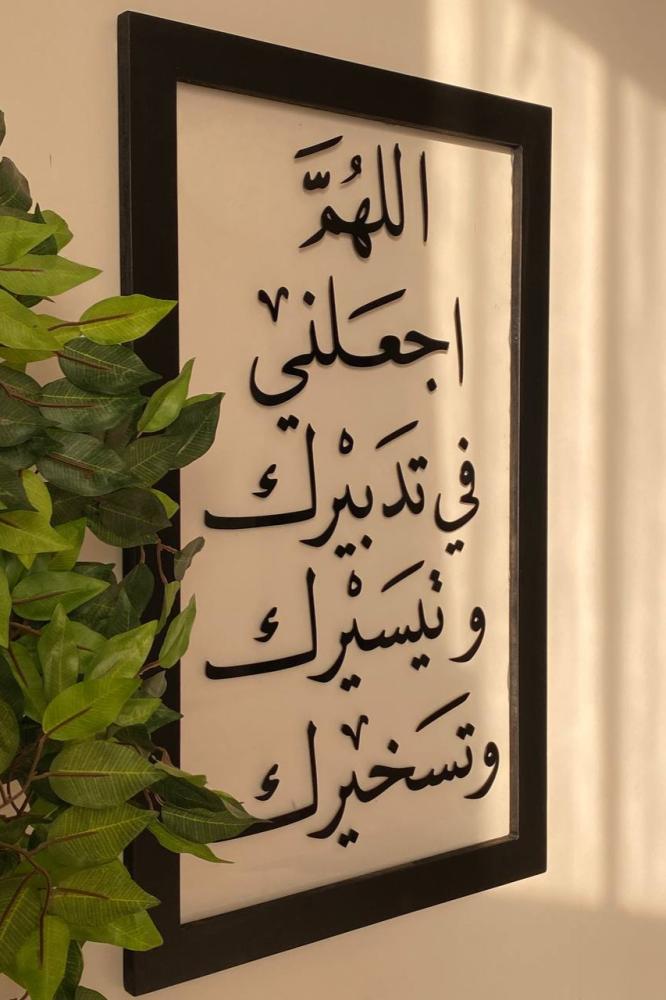 اللهُمَّ
اجعَلني
في تَدبيْرك
و تَيسيْرك
وتَسخيرك